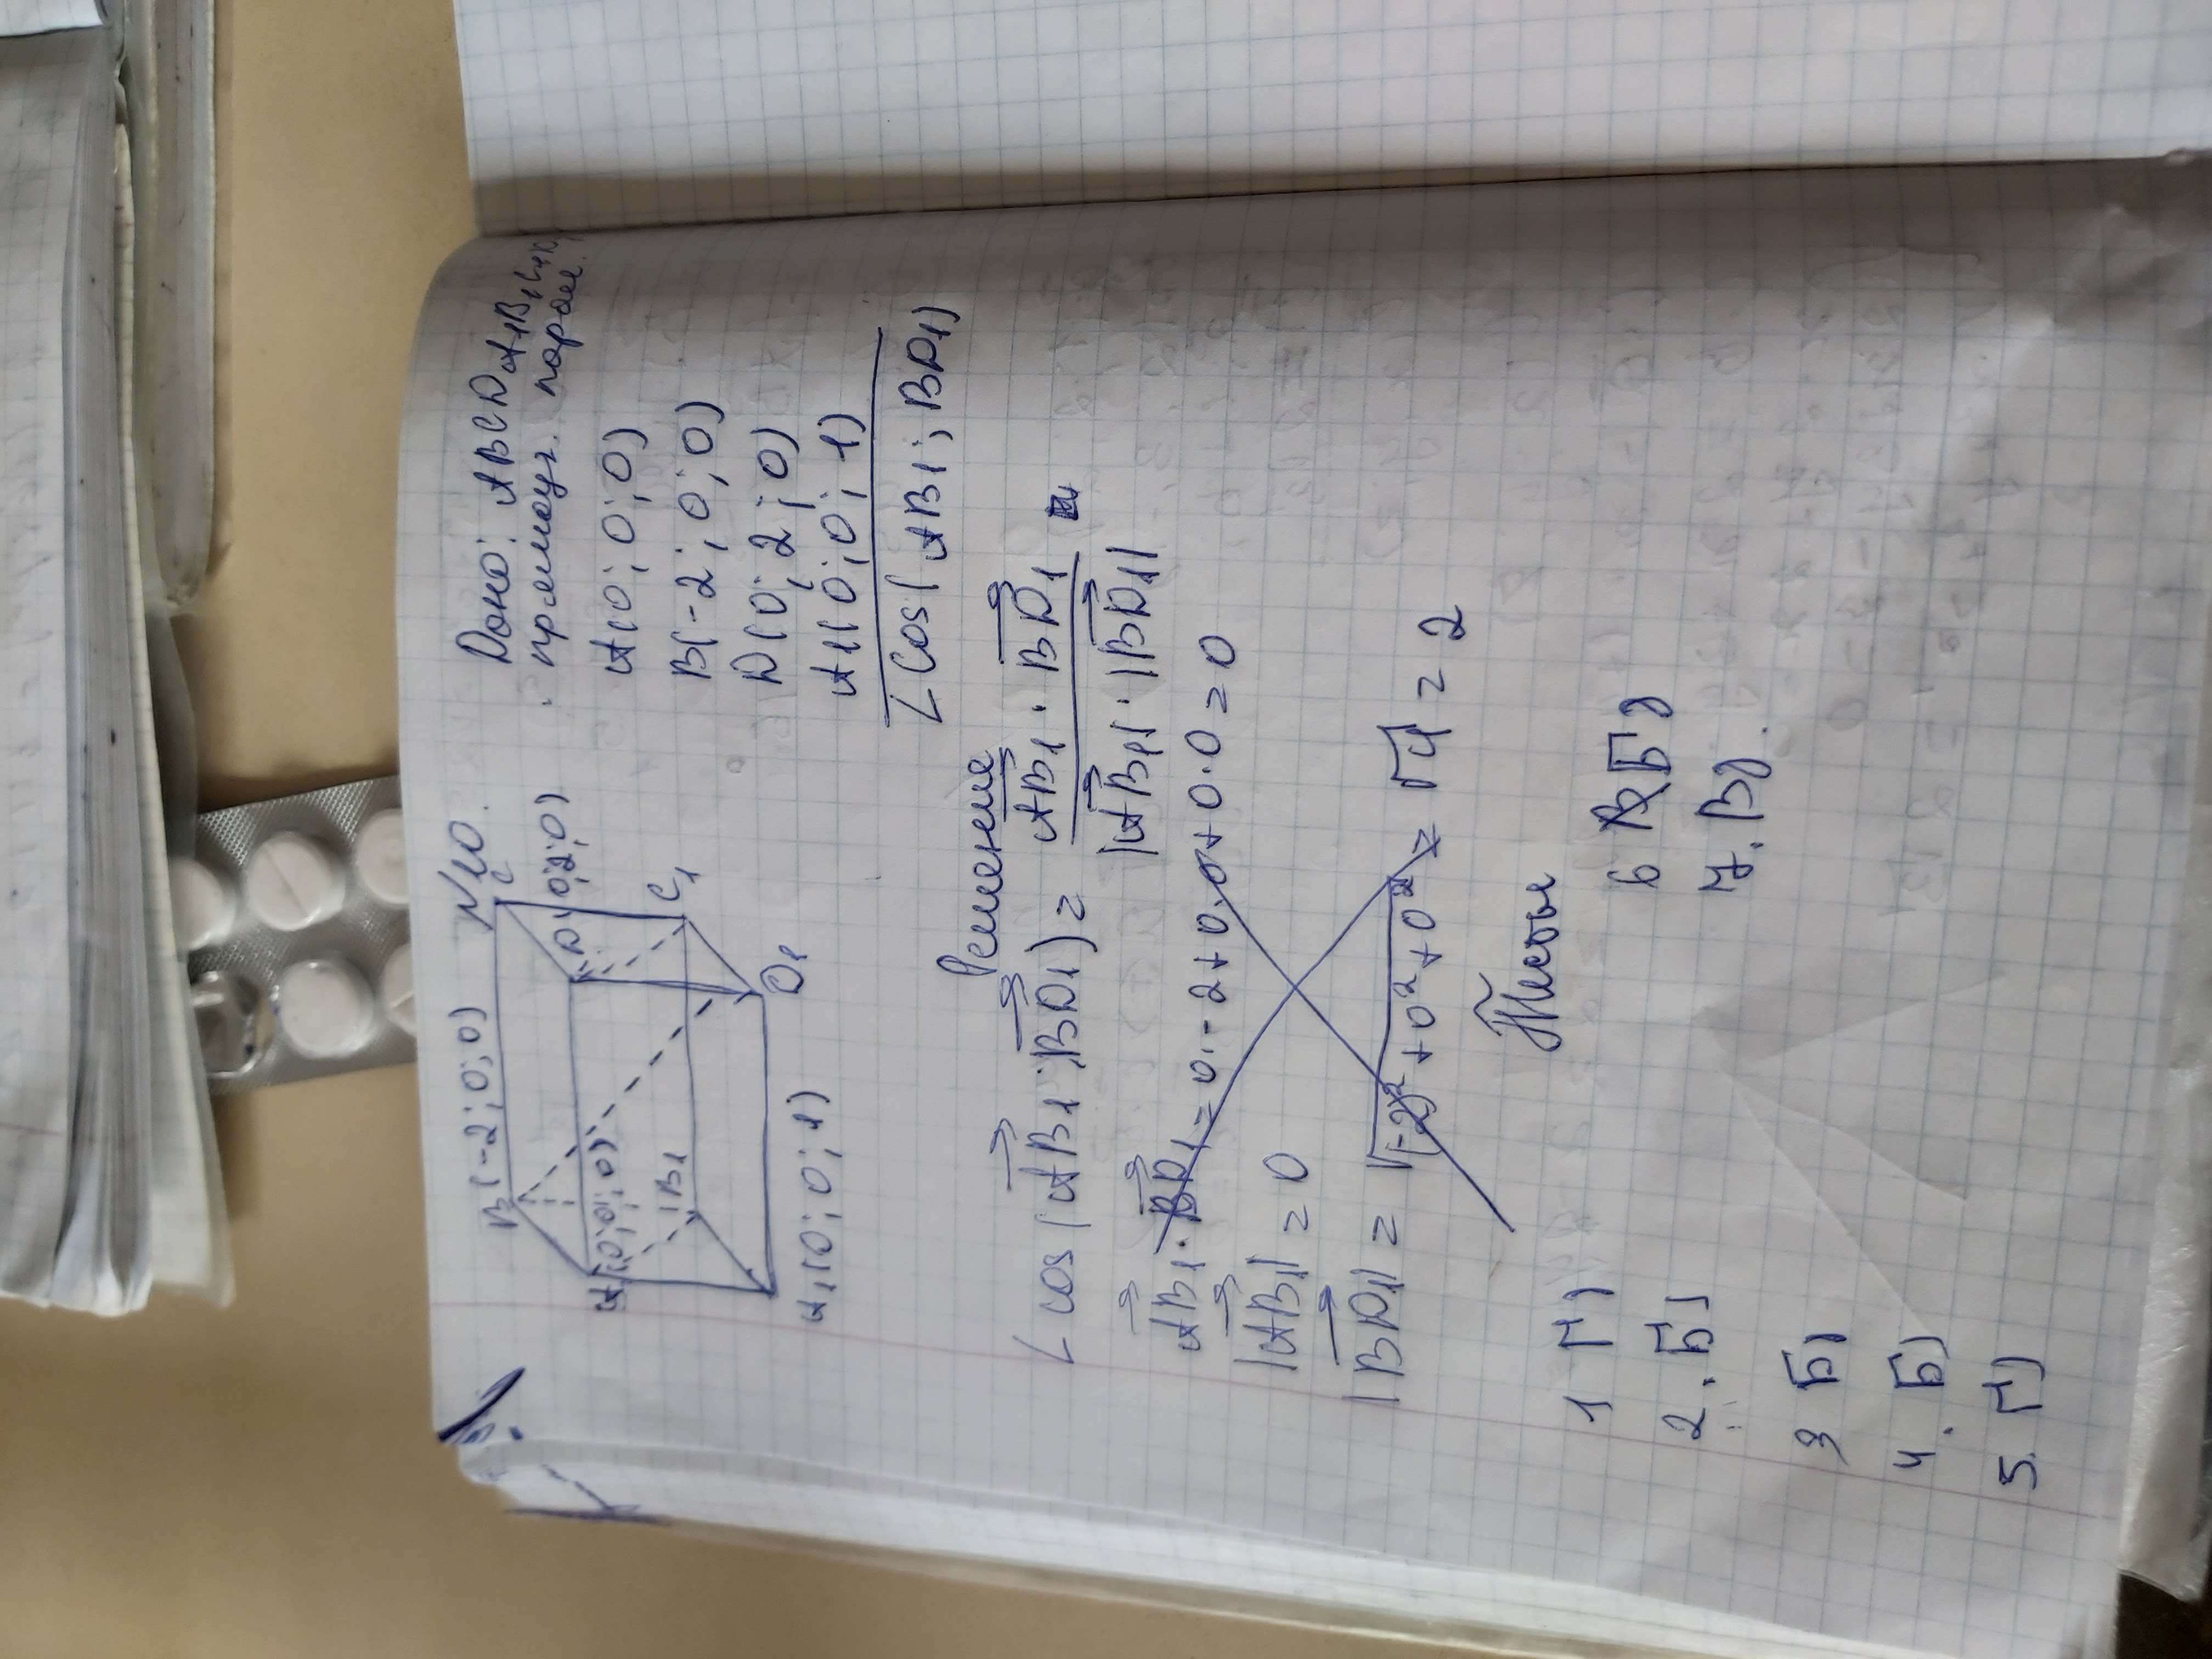 N10.
B(-2;0;0)
C
A(0;0;0)
D(0;2;0)
B1
C1
A1(0;0;1)
D1
Дано: ABCDA1B1C1D1
прямоуг. паралл.
A(0;0;0)
B(-2;0;0)
D(0;2;0)
A1(0;0;1)
∠cos(AB1; BD1)
Решение
∠cos(AB1;BD1) = AB1 · BD1 / |AB1| · |BD1|
AB1 · BD1 = 0·-2+0·0+0·0=0
|AB1| = 0
|BD1| = √(-2)²+0²+0² = √4 = 2
Тесты
1 Г)
2. Б)
3 Б)
4. Б)
5. Г)
6 Б)
7. В)